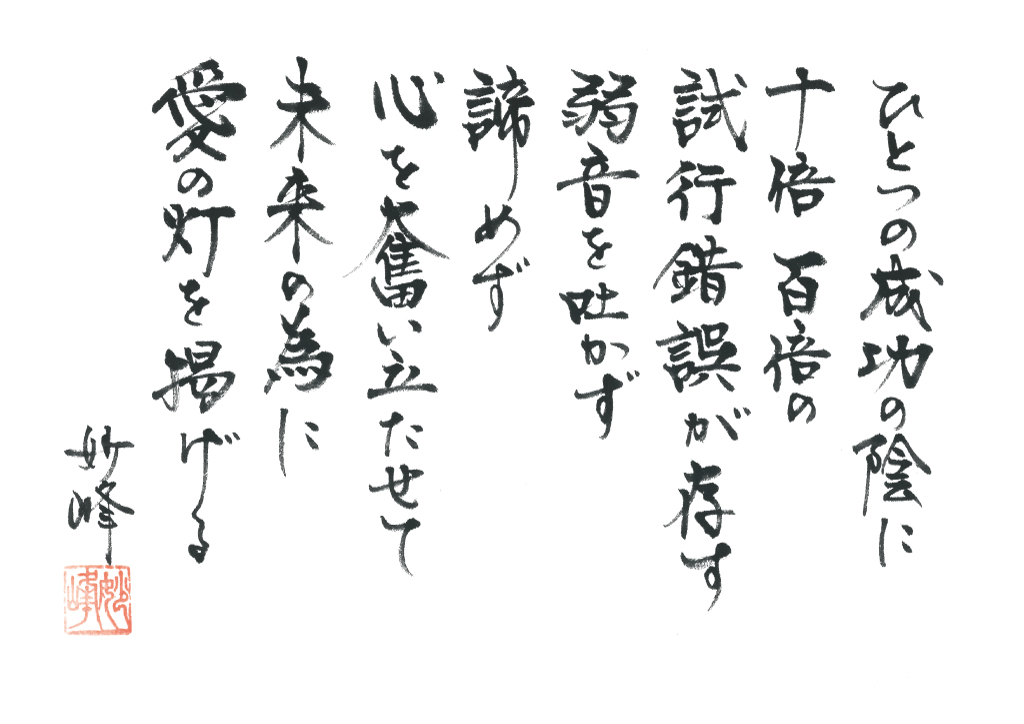 ひとつの成功の陰に
十倍 百倍の
試行錯誤が存す
弱音を吐かず
諦めず
心を奮い立たせて
未来の為に
愛の灯を掲げる
妙峰
妙峰